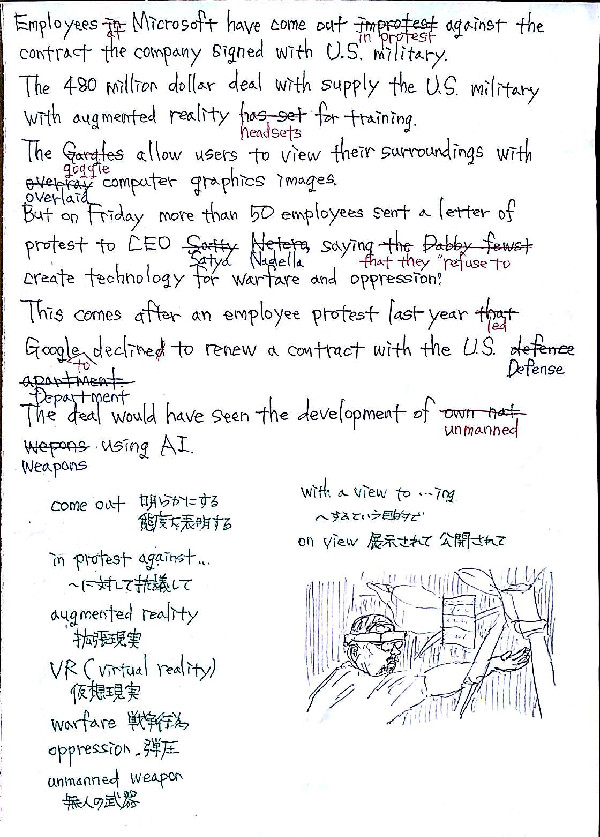 Employees in Microsoft have come out improtest against the
in protest
contract the company signed with U.S. military.
The 480 million dollar deal with supply the U.S. military
with augmented reality has set for training.
headsets
The Gargles allow users to view their surroundings with
goggle
overray computer graphics images.
overlaid
But on Friday more than 50 employees sent a letter of
protest to CEO Satty Netera, saying the Dabby fewst
Satya Nadella that they "refuse to
create technology for warfare and oppression."
This comes after an employee protest last year that
led
Google declined to renew a contract with the U.S. defence
to Defense
apartment.
Department
The deal would have seen the development of own nat
unmanned
wepons using AI.
weapons
come out 明らかにする
態度を表明する
in protest against...
〜に対して抗議して
augmented reality
拡張現実
VR (virtual reality)
仮想現実
warfare 戦争行為
oppression 弾圧
unmanned weapon
無人の武器
with a view to ...ing
〜するという目的で
on view 展示されて 公開されて